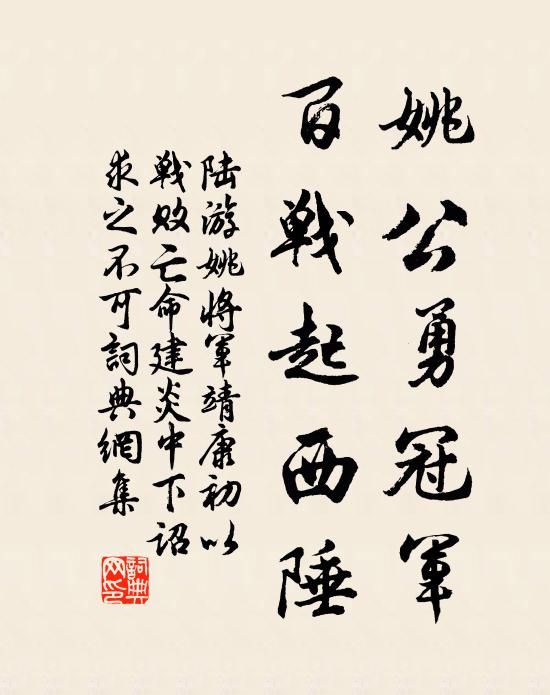 姚公勇冠軍
百戰起西陲
陆游姚將軍靖康初以
戰敗亡命建炎中下詔
求之不可詞典網集
詞典网印